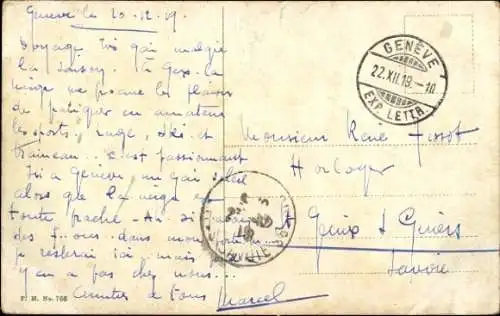 Genève le 20-12-09.
Voyage très gai malgré
la saison. À Gex. la
neige me donne le plaisir
de pratiquer en amateur
les sports: luge, ski et
traineau.. c'est passionnant
Ici à Genève un gai soleil
alors que la neige est
toute fraîche - Ah. si j'avais
des dans mon
je resterai ici, mais
y en a pas chez nous...
Amitiés à tous Marcel
P. M. No. 766
GENÈVE 1
22.XII.19.-10
EXP. LETTR.
Monsieur René Tissot
Horloger
St Genix s Guiers
Savoie